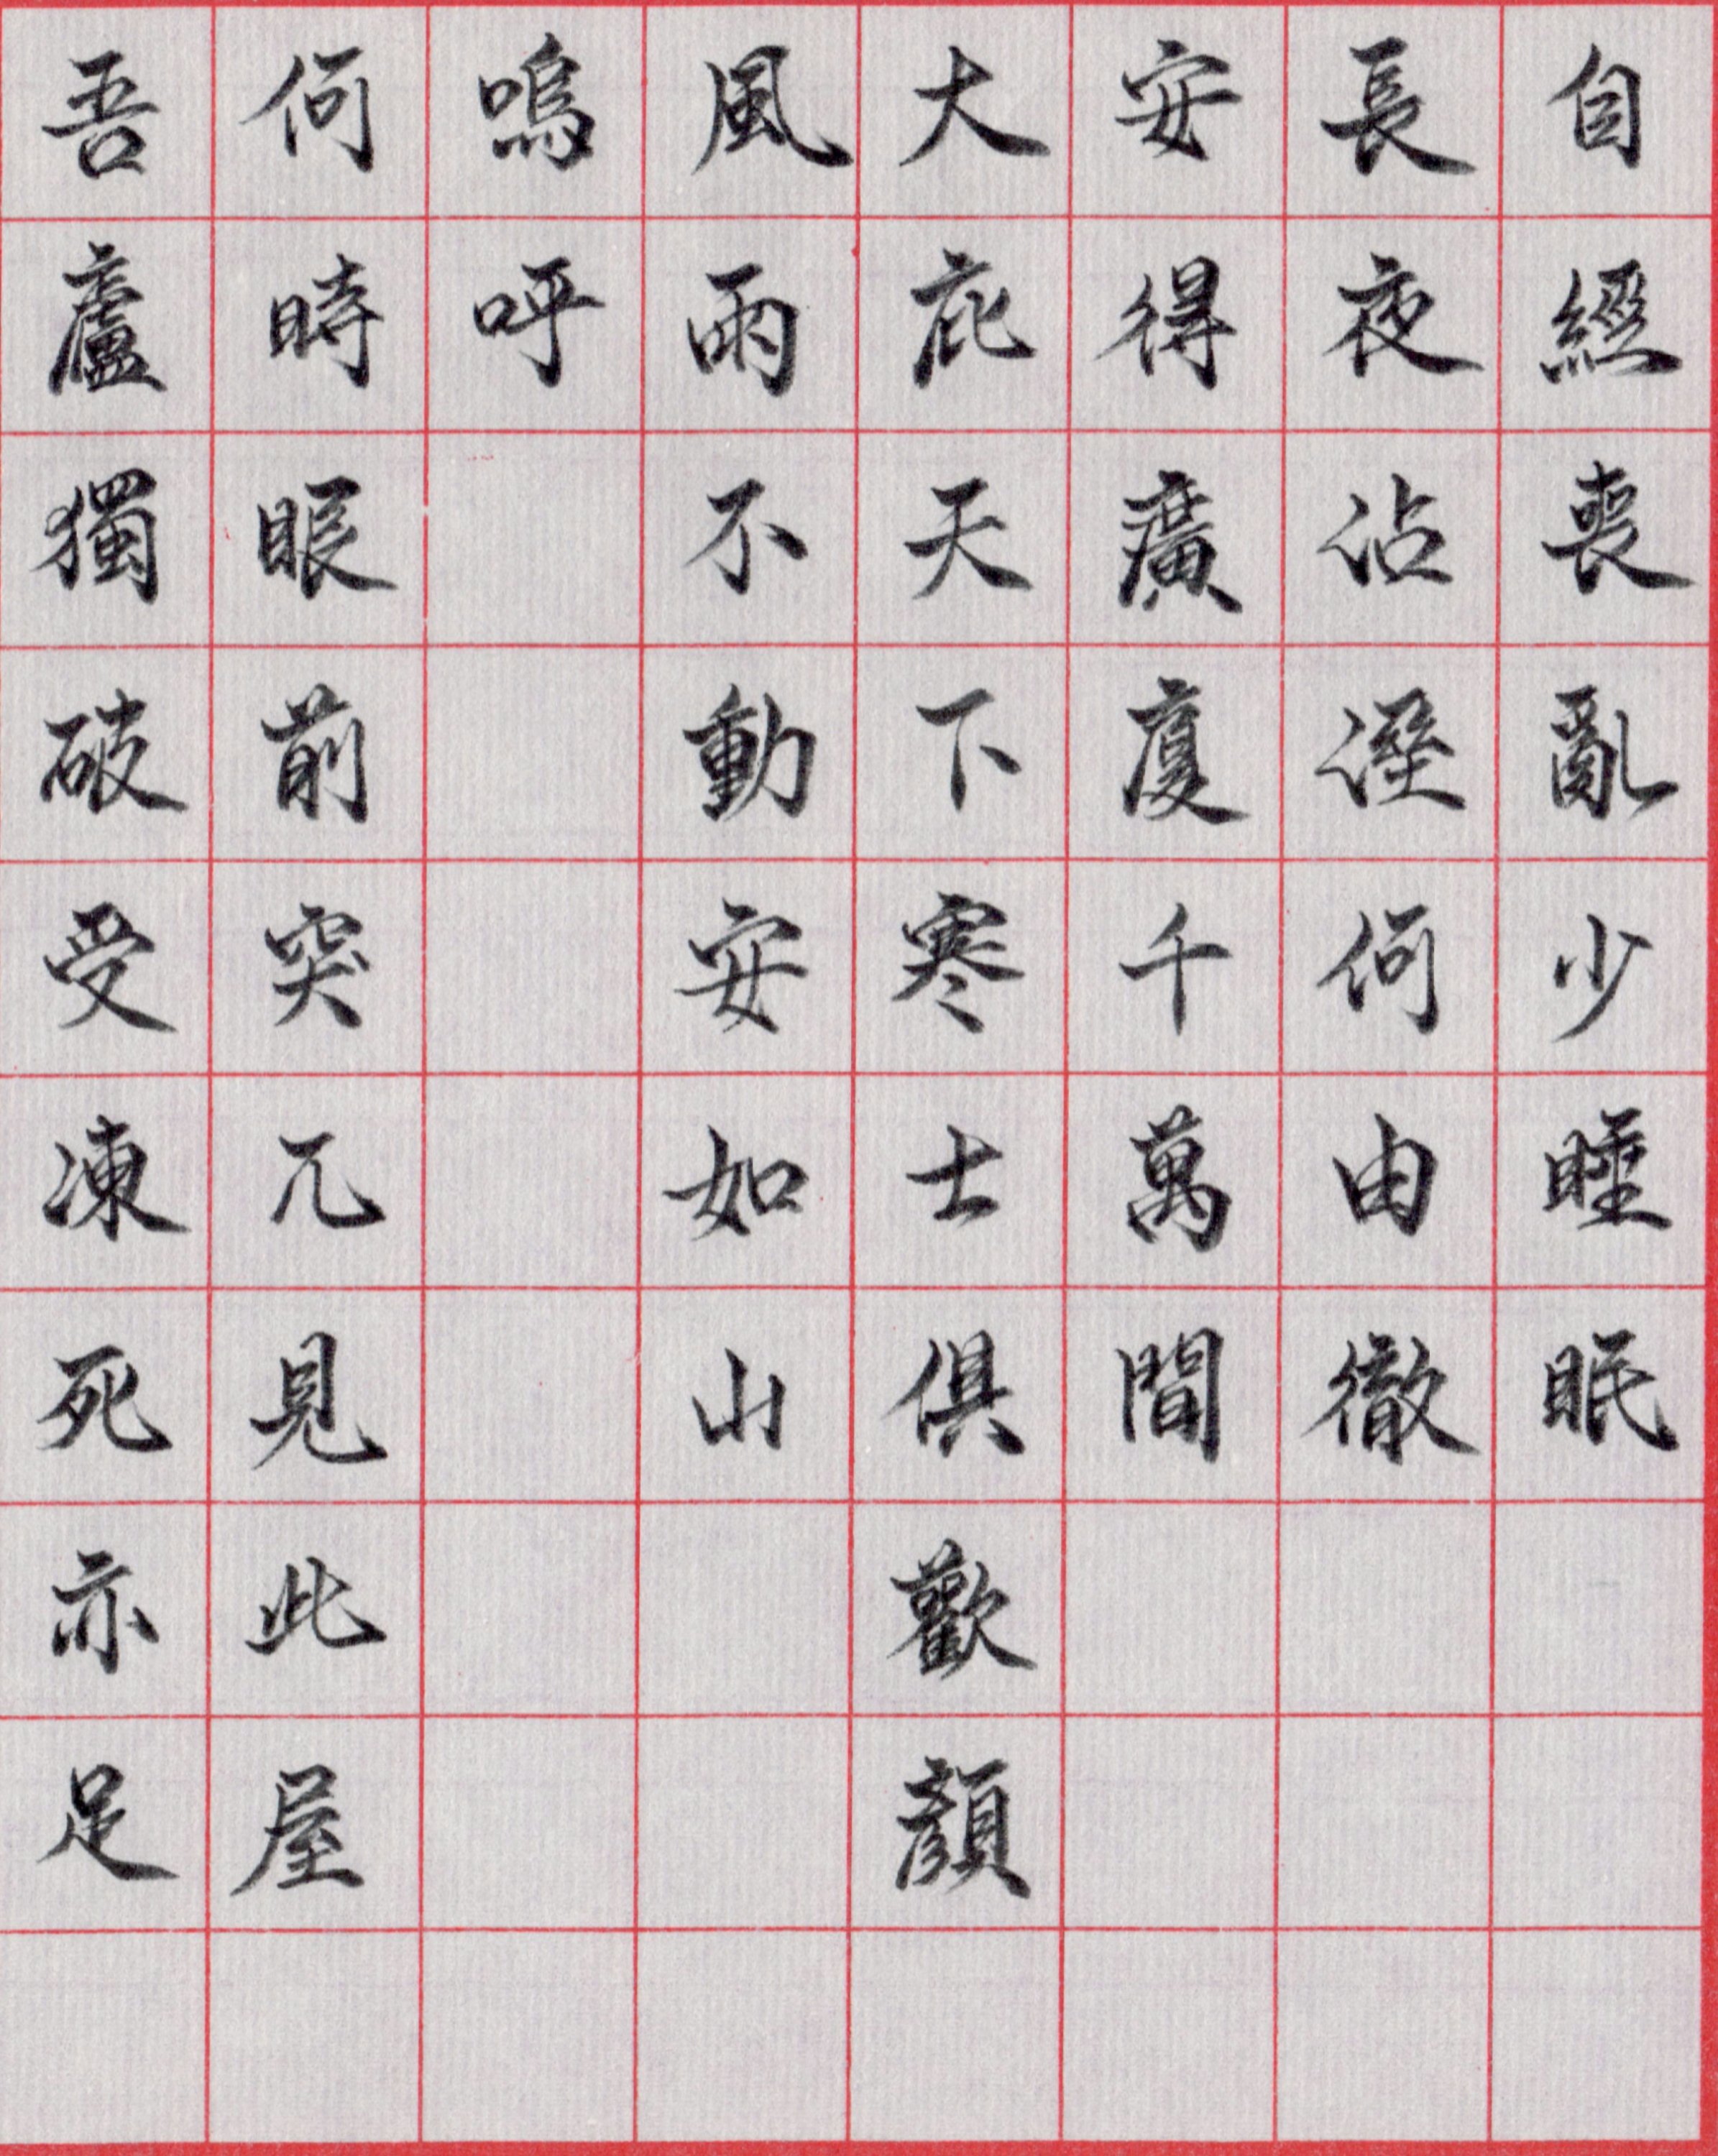 自經喪亂少睡眠
長夜沾溼何由徹
安得廣廈千萬間
大庇天下寒士俱歡顏
風雨不動安如山
嗚呼
何時眼前突兀見此屋
吾廬獨破受凍死亦足